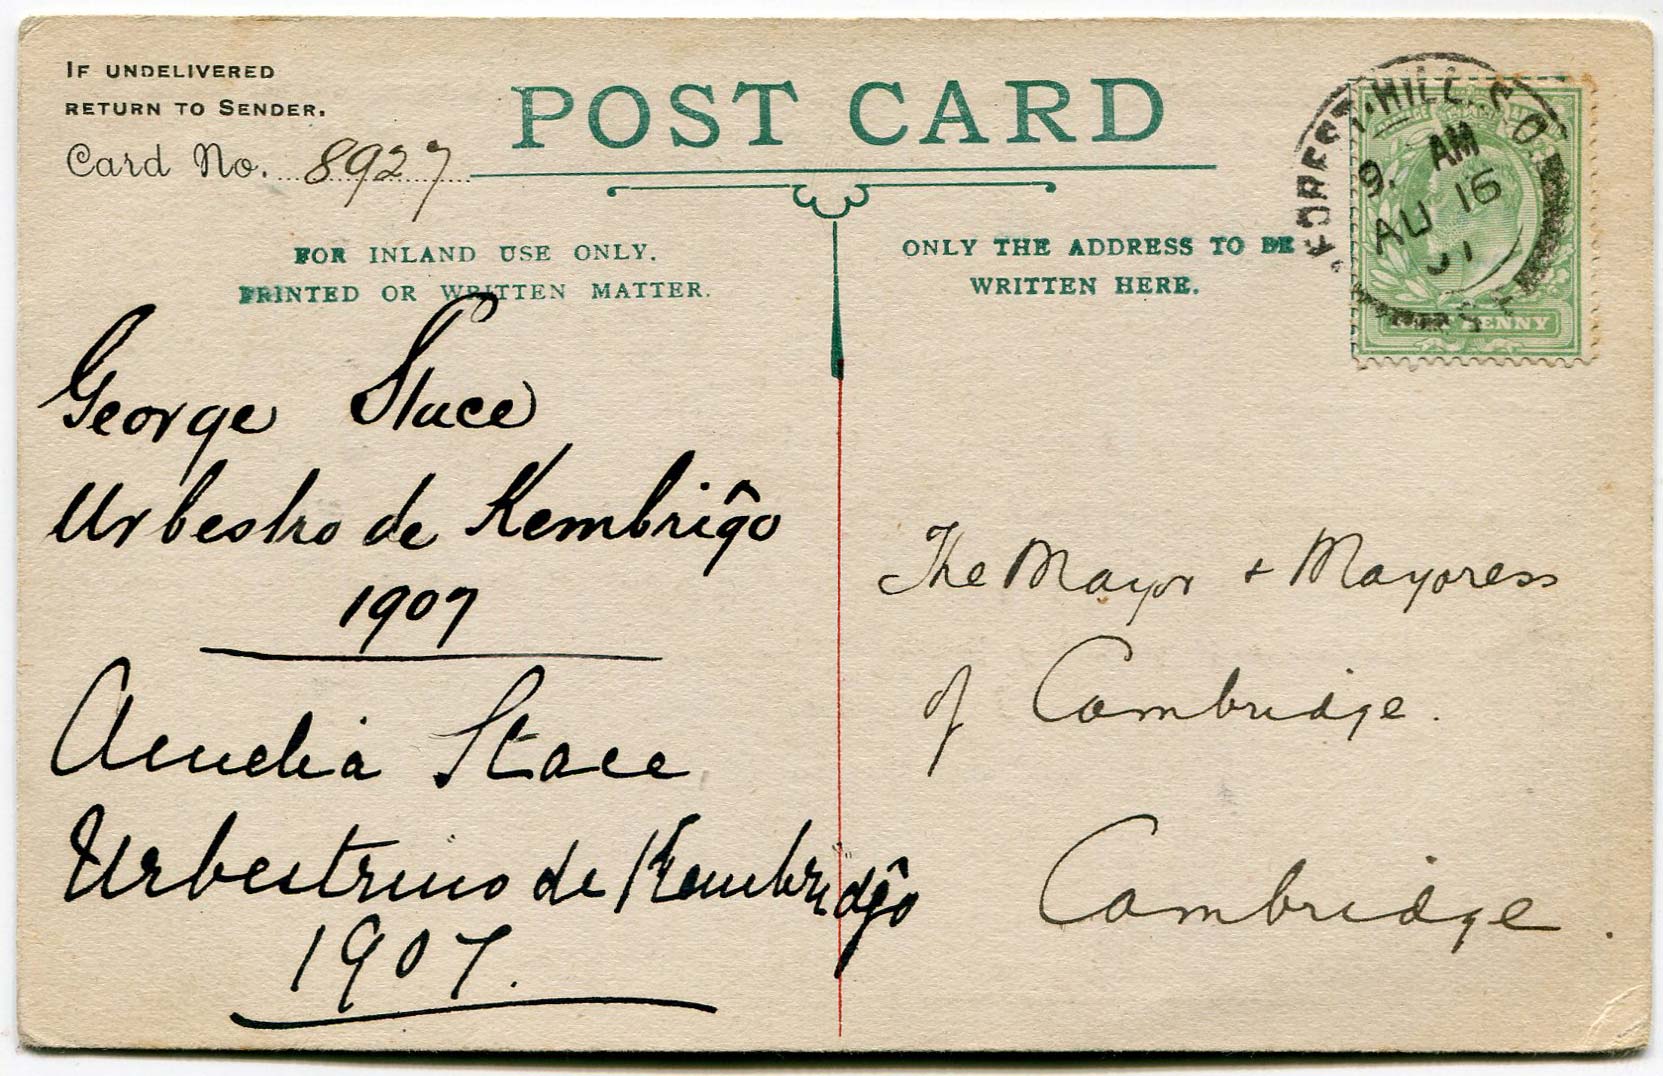 IF UNDELIVERED
RETURN TO SENDER.
Card No. 8927
POST CARD
FOR INLAND USE ONLY.
PRINTED OR WRITTEN MATTER.
ONLY THE ADDRESS TO BE
WRITTEN HERE.
FOREST-HILL S.O.
9. AM
AU 16
07
S.E
HALF PENNY
George Stace
Urbestro de Kembriĝo
1907
Amelia Stace
Urbestrino de Kembridĝo
1907.
The Mayor + Mayoress
of Cambridge.
Cambridge.